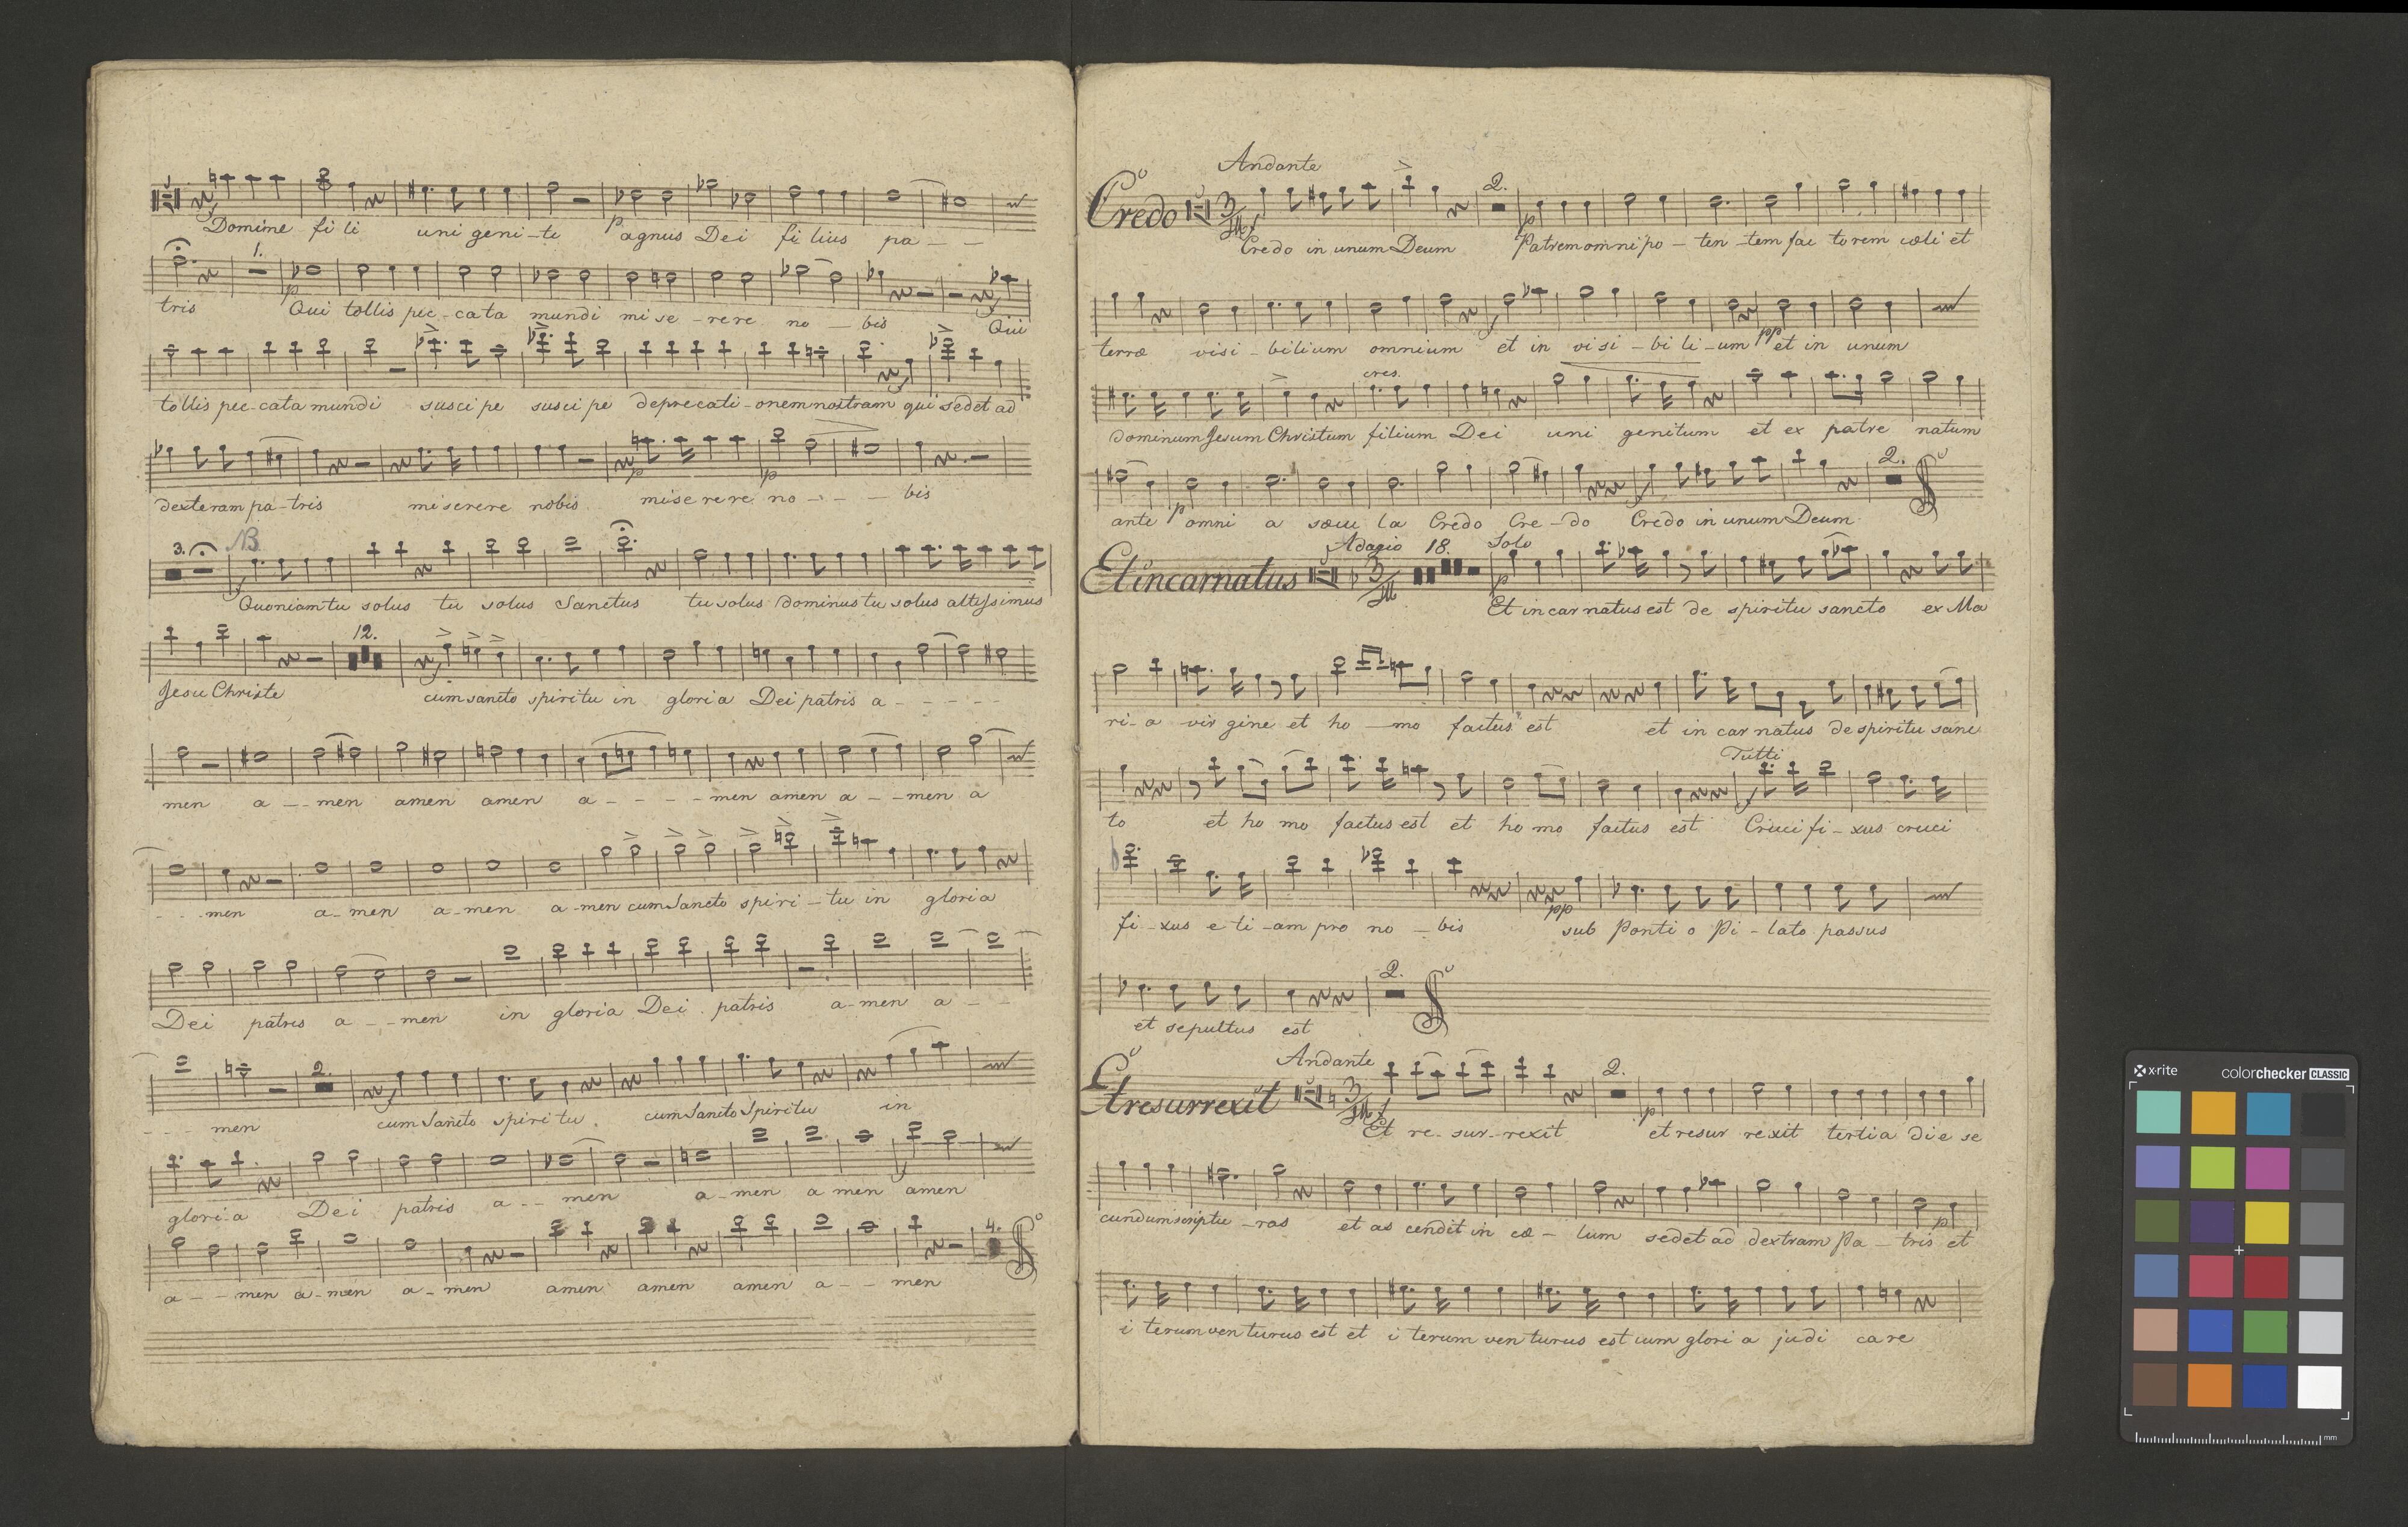 Domine fi li uni geni-te agnus Dei fi lius pa - -
1.
tris Qui tollis pec-cata mundi mi se-rere no - bis Qui
tollis pec-cata mundi suscipe suscipe deprecati-onem nostram qui sedet ad
dexteram pa-tris miserere nobis miserere no - - - bis
3. NB
Quoniam tu solus tu solus Sanctus tu solus Dominus tu solus altissimus
12.
Jesu Christe cum sancto spiritu in gloria Dei patris a - - - - -
men a - - men amen amen a - - - - men amen a - - men a
- - - men a-men a-men a-men cum Sancto spiri-tu in gloria
Dei patris a - - men in gloria Dei patris a-men a - -
2.
- - - men cum Sancto spiritu cum Sancto Spiritu in
glori-a Dei patris a - - men a-men amen amen
4.
a - - men a-men a-men amen amen amen a - - men
Andante
Credo 3 2.
Credo in unum Deum Patrem omnipo-ten-tem fac torem cœli et
terræ visi-bilium omnium et in visi-bili-um pp et in unum
cres.
Dominum Jesum Christum filium Dei uni genitum et ex patre natum
2.
ante p omni a sæcu la Credo Cre-do Credo in unum Deum
Adagio 18. Solo
Et incarnatus 3
Et incarnatus est de spiritu sancto ex Ma
ri-a virgine et ho - mo factus est et incarnatus de spiritu sanc
Tutti
to et homo factus est et homo factus est Cruci fi-xus cruci
pp
fi-xus e ti-am pro no-bis sub Ponti o Pi-lato passus
2.
et sepultus est
Andante
Et resurrexit 3 2.
Et re-sur-rexit et resur rexit tertia die se
cundum scriptu-ras et as cendit in cœ-lum sedet ad dextram Pa-tris et
i terum venturus est et i terum venturus est cum glori a judi care
x-rite colorchecker CLASSIC
mm